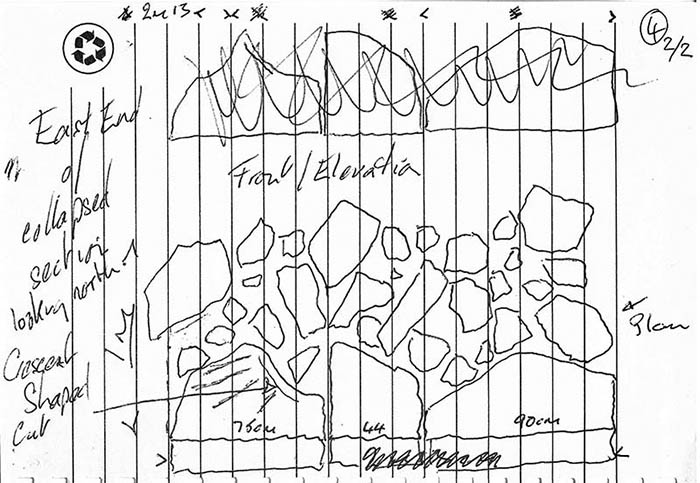 2m 13
4
2/2
East End
of
collapsed
section
looking north
Front/Elevation
Plan
Crescent
Shaped
Cut
75cm
44
90cm